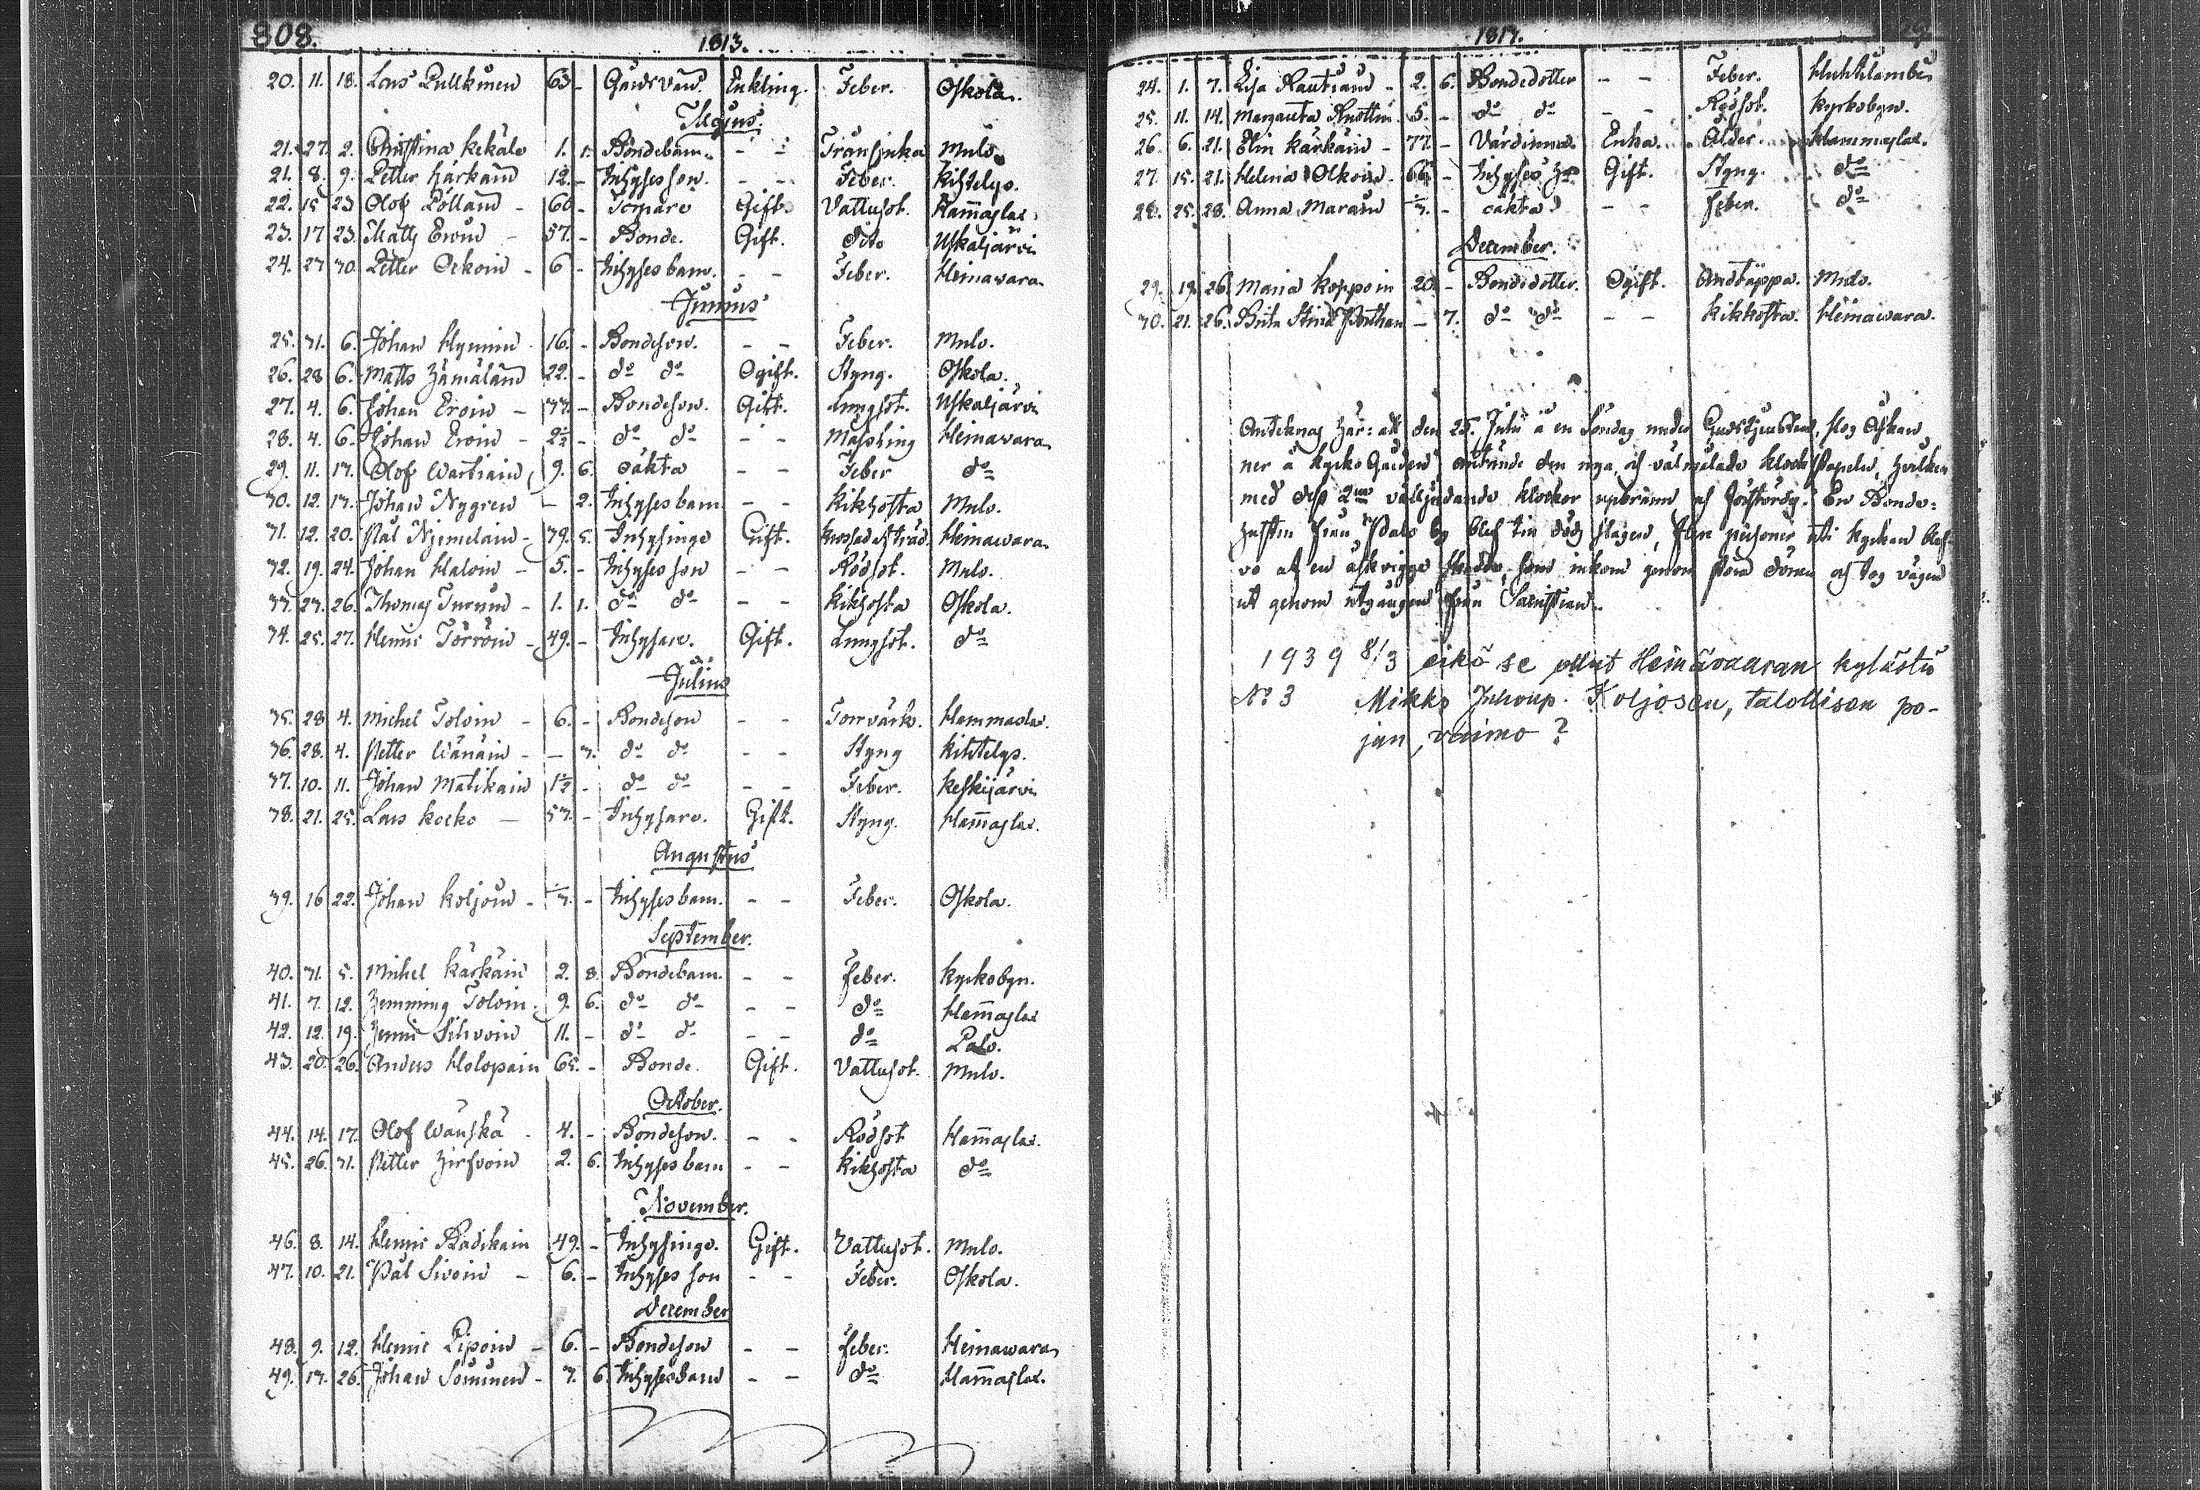 808.
1813.
20. 11. 18. Lars Pullkinen 63 - Gårdsvän. Enkling. Feber. Oskola.
Majus.
21. 27. 2. Christina Kekäle 1. 1. Bondebarn. - - Mulo.
21. 8. 9. Petter Härkäin 12. - Inhyses son. - - Feber. Kihtelys.
22. 15 23 Olof Pölländ - 60 - Gift. Vattusot. Hammaslax.
23. 17 23. Matts Eroin - 57. - Bonde. Gift. Dito Uskaljärvi
24. 27 30. Petter Ockoin - 6 - Inhyses barn. - - Feber. Heinawara.
Junius
25. 31. 6. Johan Hynnin 16. - Bondeson. - - Feber. Mulo.
26. 28 6. Matts Hämäläind 22. - do do Ogift. Styng. Oskola.
27. 4. 6. Johan Eroin - 37. - Bondeson. Gift. Lungsot. Uskaljärvi
28. 4. 6. Johan Eroin - 2½ - do do - - Mässling Heinawara
29. 11. 17. Olof Wartiain 9. 6. oäkta - - Feber do
30. 12. 17. Johan Nygren - 2. Inhyses barn - - Kikhosta Mulo.
31. 12. 20. Pål - 39. 5. Inhysinge Gift. Heinawara
32. 19. 24. Johan Haloin - 5. - Inhyses son - - Rödsot. Mulo.
33. 23. 26. Thomas Turuin - 1. 1. do do - - Kikhosta Oskola.
34. 25. 27. Henric Törröin - 49. - Inhysare. Gift. Lungsot. do
Julius
35. 28 4. Michel Toloin - 6. - Bondeson - - Torrvärk. Hammaslax.
36. 28. 4. Petter Wänäin - - 3. do do - - Styng Kihtelys.
37. 10. 11. Johan Matikain 1½ - do do - - Feber. Keskijärvi
38. 21. 25. Lars Kocko - 57. - Inhysare. Gift. Styng. Hammaslax.
Augustus
39. 16 22. Johan Koljoin - - Inhyses barn. - - Feber. Oskola.
September.
40. 31. 5. Michel Kärkäin 2. 8. Bondebarn. - - Feber. Kyrkobyn.
41. 7. 12. Hemming Toloin. 9. 6. do do - - do Hammaslax
42. 12. 19. Henric Silvoin 11. - do do - - do Palo.
43. 20. 26. Anders Holopain 65. - Bonde. Gift. Vattusot. Mulo.
October.
44. 14. 17. Olof Wänskä - 4. - Bondeson. - - Rödsot Hammaslax.
45. 26. 31. Petter Hirfvoin 2. 6. Inhyses barn - - Kikhosta do
November.
46. 8. 14. Henric Radikain 49. - Inhysinge. Gift. Vattusot. Mulo.
47. 10. 21. Pål Sivoin - 6. - Inhyses son - - Feber. Oskola.
December
48. 9. 12. Henric Pipoin - 6. - Bondeson - - Feber. Heinawara
49. 17. 26. Johan Sominen - 7. 6. Inhyses barn - - do Hammaslax.
24. 1. 7. Lisa Rautiain - 2. 6. Bondedotter - - Feber. Huhtilambi
25. 11. 14. Margareta - 5. - do do - - Rödsot. Kyrkobyn.
26. 6. 21. Elin Kärkäin - 77 - Värdinna. Enka. Ålder. Hammaslax.
27. 15. 21. Helena Olkoin - 66 - Inhyses Gift. Styng. do
28. 25. 28. Anna Marain - oäkta - - Feber. do
December.
29. 19. 26. Maria Koppoin 20. - Bondedotter. Ogift. Andtäppa. Mulo.
30. 21. 26. Brita Stina - 7. do do - - Kikhosta. Heinawara.
Antecknas här: att den 25. Julii å en Söndag under Gudstjensten, slog Åskan
ner å kyrko Gården, antände den nya och välmålade klockstapeln, hvilken
med dess 2ne välljudande klockor uppbrann och förstördes. En Bonde-
hustru från Palo by blef till döds slagen, flere personer uti kyrkan blef-
vo af en åskvigge skadde, som inkom genom stora dörren och tog vägen
ut genom utgången från Sacristian.
1939 8/3 eikö se ollut Heinävaaran kylästä
No 3 Mikko Juhonp. Koljosen, talollisen po-
jan, vaimo?